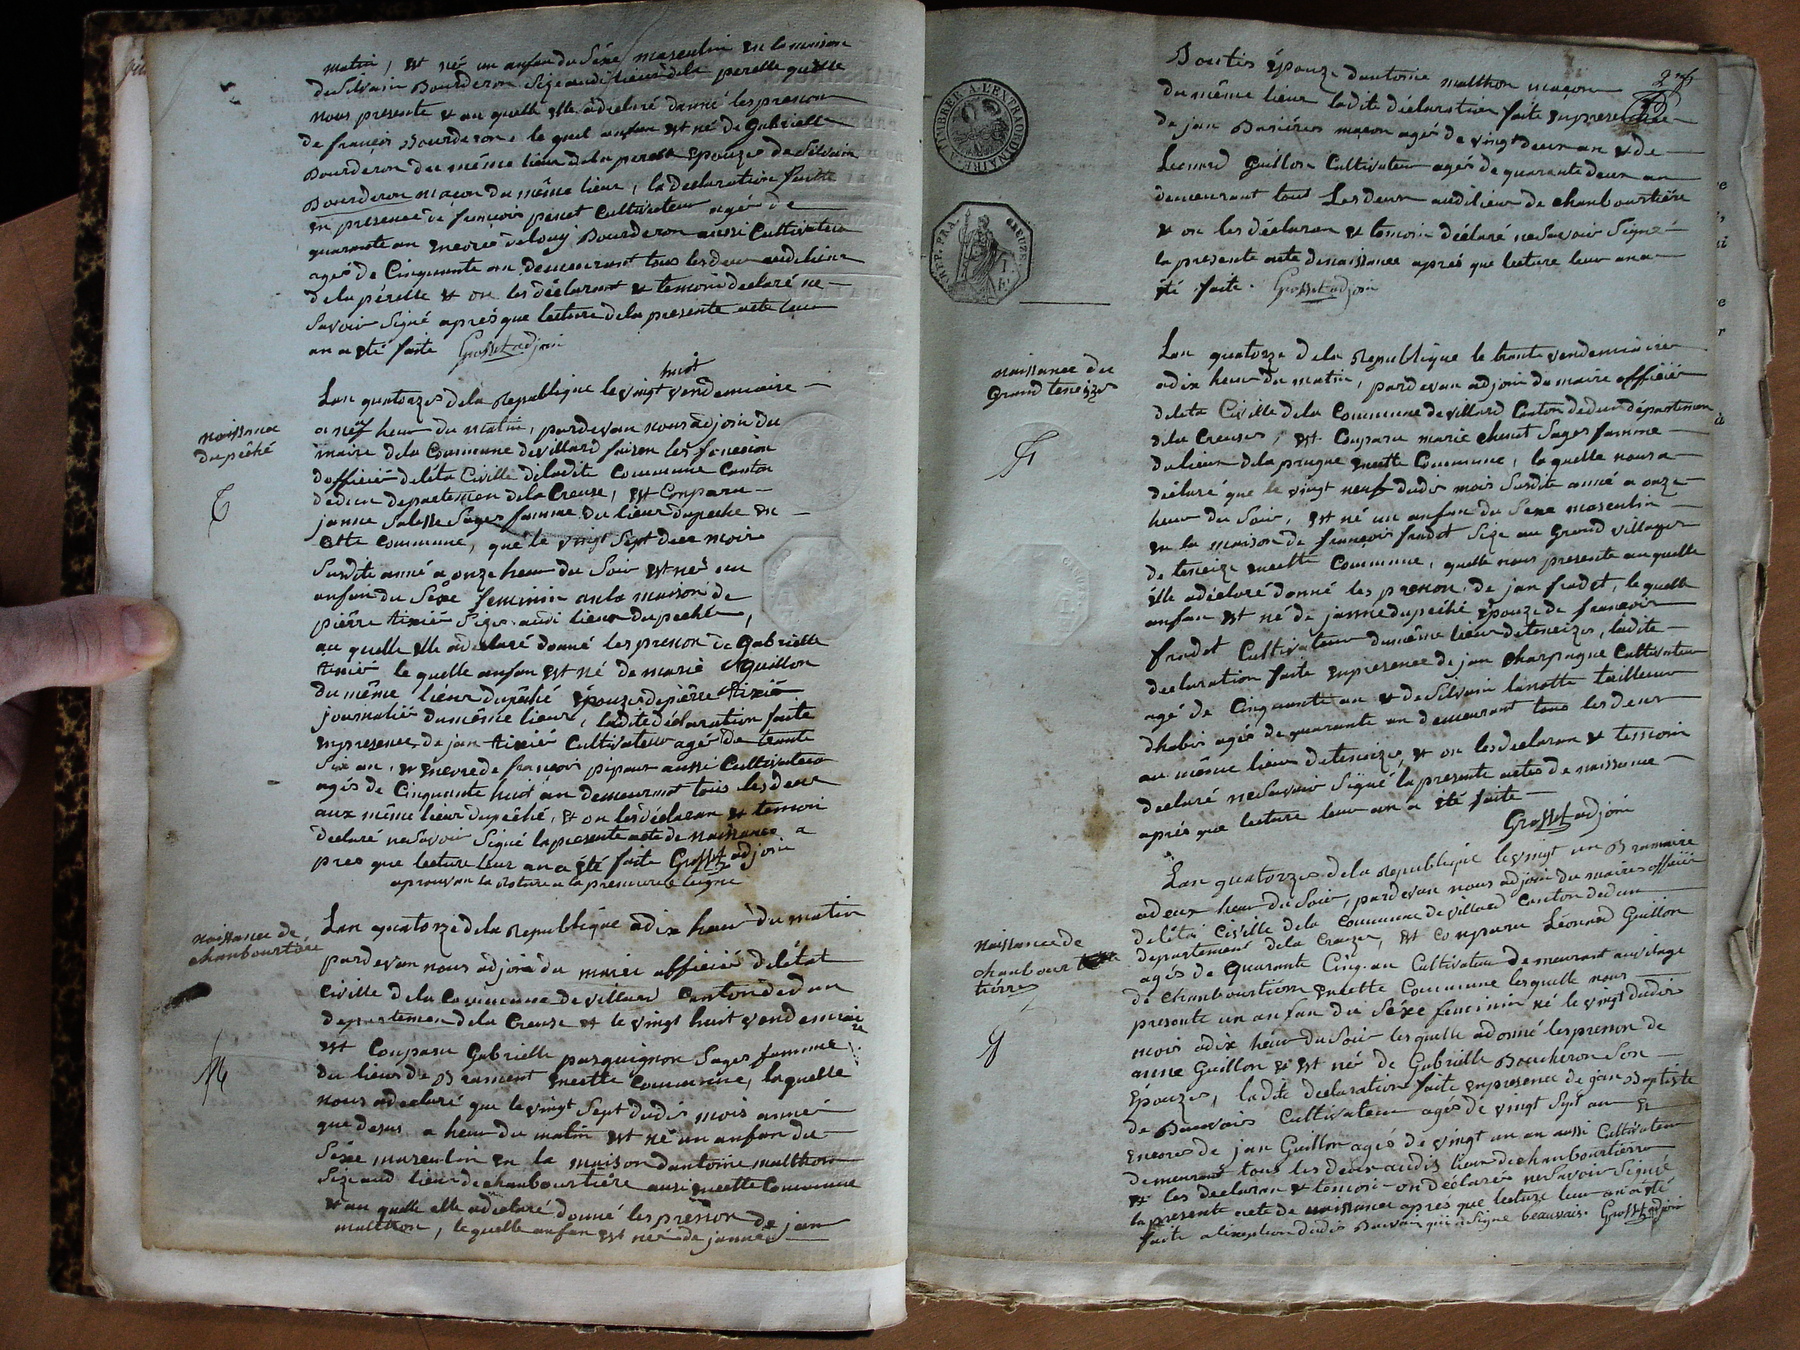 matin, et né un anfan du Séxe masculin en la maison
du Silvain Bourderon Size audi lieus de la perelle quelle
nous presente et au quelle elle a déclaré donné les prenom
de françois Bourderon, le quel anfan est né de Gabrielle
Bourderon du même lieus de la perelle Epouze de Silvain
Bourderon maçon du même lieus, la declaration faitte
en presence de françois penot Cultivateur agés de
quarante an encorre de louy Bourderon aussi Cultivateur
agés de Cinquante an demeurant tous les deu audi lieus
de la pérelle et on les déclarant et temoin declaré ne
Savoir Signé aprés que lecture de la presente acte leur
an a été faite Grosset adjoin
naissance
dupêché
T
huit
Lan quatorzes de la Republique le vingt vendemiaire
a neuf heur du matin, pardevan nous adjoin du
maire de la Commune de villard faisen les fonction
dofficié de léta Civille de ladite Commune Canton
dedun departemen de la Creuse, est Conparu
janne Salesse Sages famme du lieus dupeche en
cette Commune, que le vingt Sept du mois
Susdite anné a onze heur du Soir est né un
anfan du Séxe feminin en la maison de
piérre tixié Size audi lieus dupeché,
au quelle elle a déclaré donné les prenon de Gabrielle
tixié le quelle anfan est né de marie Guillon
du même lieus dupêché épouze de piérre tixié
journalié du même lieus, ladite déclaration faite
en presence de jan tixié Cultivateur agés de trante
Six an, et encore de françois pipaux aussi Cultivateur
agés de Cinquante huit an demeurant tous les deux
aux même lieus dupêché, et on les déclaran et temoin
déclaré ne Savoir Signé la presente acte de naissance a
prés que lecture leur an a été faite Grosset adjoin
aprouvan la rature a la premiere ligne
naissance de
chanbourtière
M
Lan quatorze de la Republique a dix heur du matin
pardevan nous adjoin du maire officié de létat
Civille de la Commune de villard Canton dedun
departemen de la Creuse et le vingt huit vendemiaire
est Conparu Gabrielle pasquignon Sages famme
du lieus de Brament en cette Commune, laquelle
nous a declaré que le vingt Sept dudis mois anné
que desus a heur du matin est né un anfan du
Séxe masculin en la maison dantoine malthon
Size aud lieus de chanbourtiére aussi en cette Commune
et au quelle elle a déclaré donné les prenon de jan
malthon, le quelle anfan est né de janne
TIMBRÉE A L'EXTRAORDINAIRE
REP. FRA.
CREUZE
Boutis épouze dantoine malthon maçon
du même lieus ladite déclaration faite en presence
de jan Busiéres maçon agés de vingt deux an et de
Léonard Guillon Cultivateur agés de quarante deux an
demeurant tout Les deux audi lieus de chanbourtiére
et on les déclaran et temoin déclaré ne Savoir Signé
la presente acte de naissance aprés que lecture leur an a
été faite. Grosset adjoin
naissance du
Grand teneizes
Lan quatorze de la Republique le trante vendemiaire
a dix heur du matin, pardevan adjoin du maire officié
de leta Civille de la Commune de villard Canton dedun départemen
de la Creuses, est Conparu marie chenot Sages famme
du lieus de la prugne en cette Commune, la quelle nous a
déclaré que le vingt neuf dudis mois Susdite anné a onze
heur du Soir, est né un anfan du Sexe masculin
en la maison de françois fradet Size au Grand village
de teneize en cette Commune, quelle nous presente au quelle
elle a déclaré donné les prenon de jan fradet, le quelle
anfan est né de janne dupêché épouze de françois
fradet Cultivateur du même lieus de teneizes, ladite
declaration faite en presence de jan charpagne Cultivateur
agé de Cinquante an et de Silvain lamotte tailleur
dhabis agés de quarante an demeurant tous les deux
au même lieus de teneizes, et on les declaran et temoin
declaré ne Savoir Signé la presente actes de naissance
aprés que lecture leur an a été faite
Grosset adjoin
naissance de
chanbour
tiérres
Lan quatorzes de la republique le vingt un Bramaire
a deux heur du Soir, pardevan nous adjoin du maires officié
de léta Civille de la Commune de villard Canton dedun
departement de la Creuze, est Conparu Léonard Guillon
agés de quarante Cinq an Cultivateur demeurant au vilage
de chanbourtiérre en cette Commune lesquelle nous
presente un anfan du Séxe feminin né le vingt dudis
mois a dix heur du Soir lesquelle a donné les prenon de
anne Guillon et est né de Gabrielle Boucheron Son
Epouze, la dite declaration faite en presence de jan Baptiste
de Bauvais Cultivateur agés de vingt Sept an et
encores de jan Guillon agés de vingt un an aussi Cultivateur
demeurant tous les deux audis lieus de chanbourtierre
et les declaran et temoin on déclaré ne Savoir Signé
la presente acte de naissance aprés que lecture leur an a été
faite a lexeption dudis Bauvais qui a Signe beauvais. Grosset adjoin